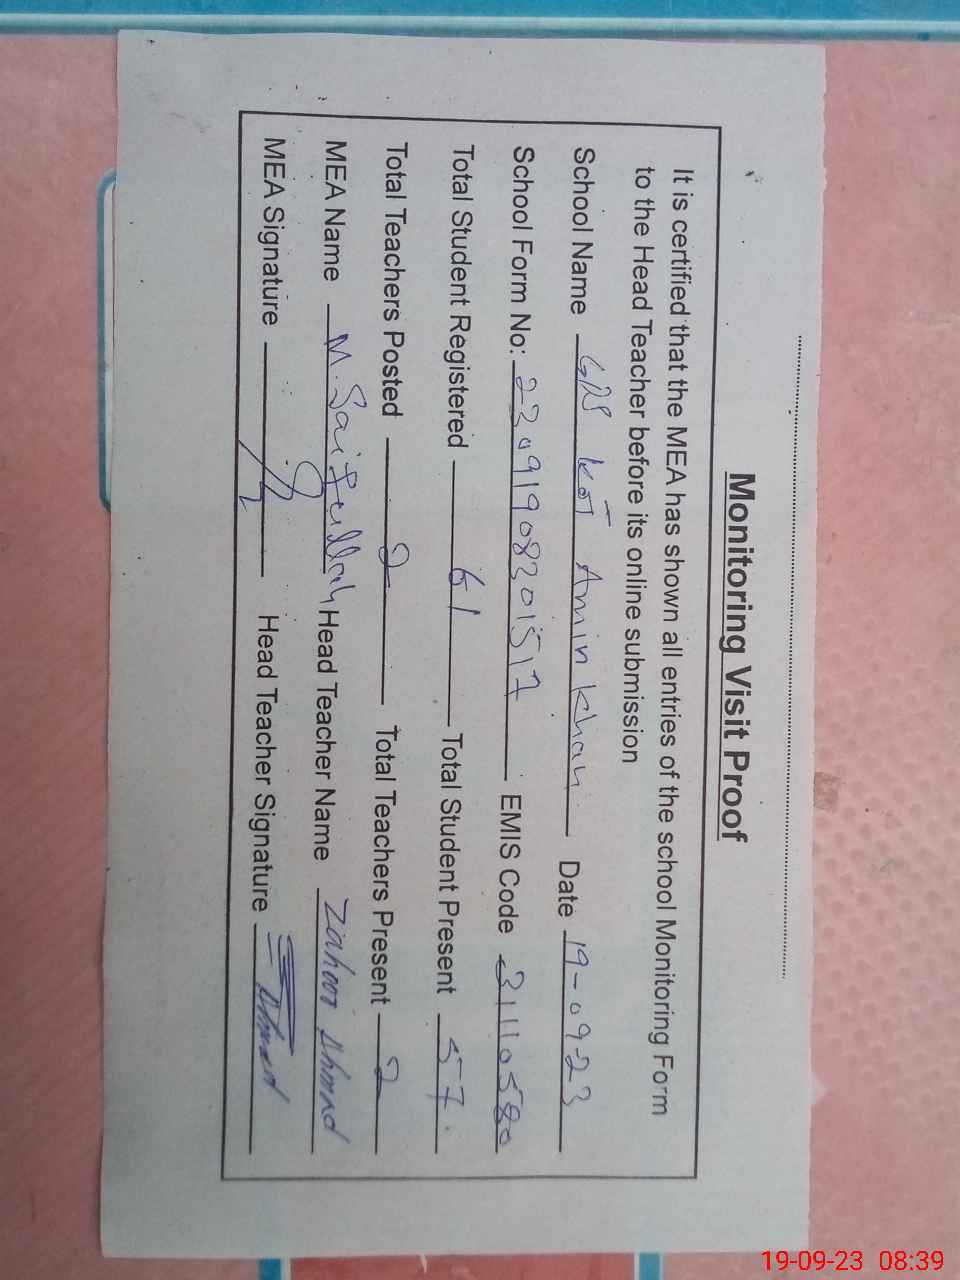 Monitoring Visit Proof
It is certified that the MEA has shown all entries of the school Monitoring Form
to the Head Teacher before its online submission
School Name GPS Kot Amin Khan Date 19-09-23
School Form No: 22091908201517 EMIS Code 31110580
Total Student Registered 61 Total Student Present 57
Total Teachers Posted 2 Total Teachers Present 2
MEA Name M. Saifullah Head Teacher Name Zahoor Ahmad
MEA Signature Head Teacher Signature Ahmad
19-09-23 08:39